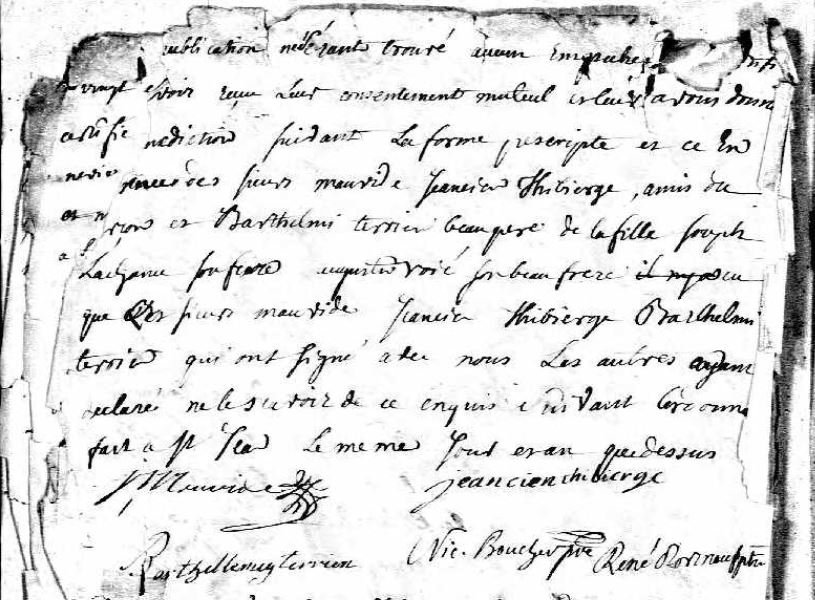 publication n trouvé aucun
vingt avoir reçu Leur consentement mutuel avons donné
certifié nediction suivant La forme prescripte et ce En
des sieurs mauvide Jeancien Thibierge, amis du
et Barthelmi terrien beaupere de la fille Joseph
Lachance son frere augustin son beau frere
que Les sieurs mauvide Jeancien thibierge Barthelmi
terrien qui ont signé avec nous Les autres ayant
declaré ne le scavoir de ce enquis suivant L'ordonna
fait a st Jean Le meme Jour et an que dessus
JMauvide
jeancien thibierge
Barthellemy terrien Nic. Boucher ptre René